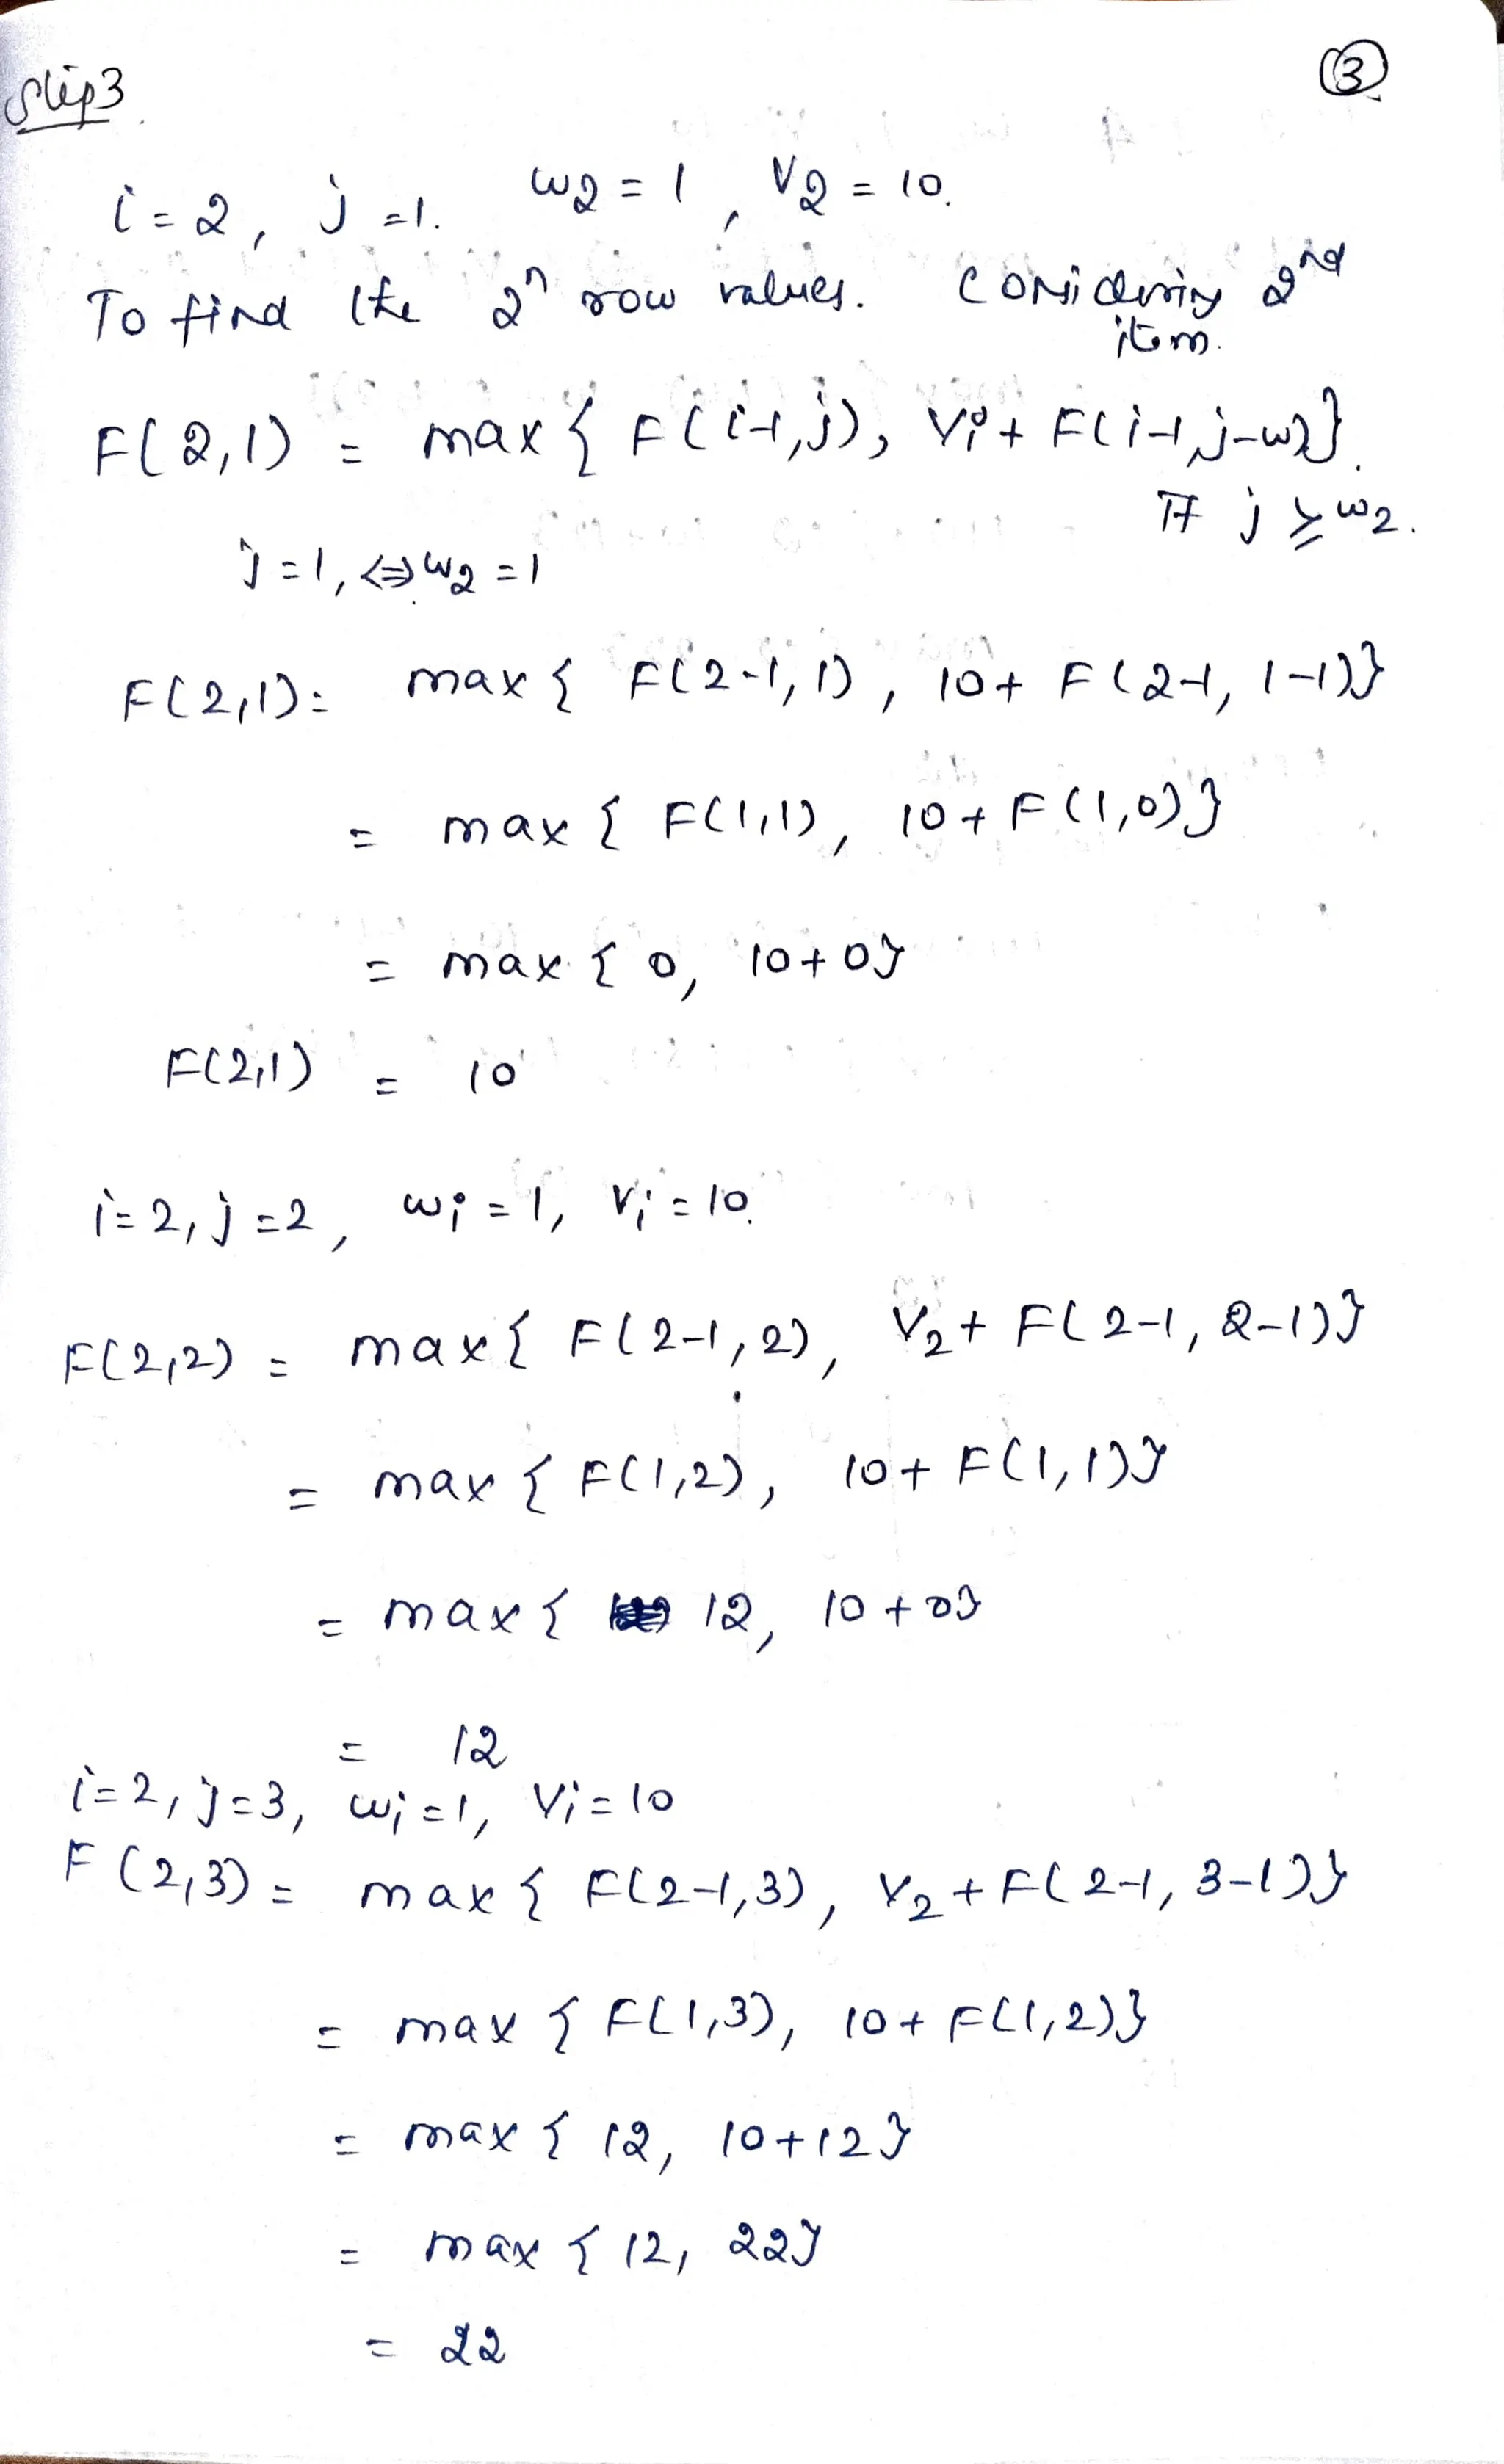 ③
Step3
i=2, j=1. w2=1, V2=10.
To find the 2n row values. Considering 2nd
item.
F(2,1) = max{ F(i-1,j), Vi+ F(i-1,j-w2)}.
If j ≥ w2.
j=1, <=> w2=1
F(2,1)= max{ F(2-1,1), 10+ F(2-1, 1-1)}
= max{ F(1,1), 10+F(1,0)}
= max{ 0, 10+0}
F(2,1) = 10
i=2, j=2, wi=1, Vi=10.
F(2,2) = max{ F(2-1,2), V2+ F(2-1, 2-1)}
= max{ F(1,2), 10+ F(1,1)}
= max{ 12, 10+0}
= 12
i=2, j=3, wi=1, Vi=10
F(2,3) = max{ F(2-1,3), V2+F(2-1, 3-1)}
= max{ F(1,3), 10+ F(1,2)}
= max{ 12, 10+12}
= max{ 12, 22}
= 22